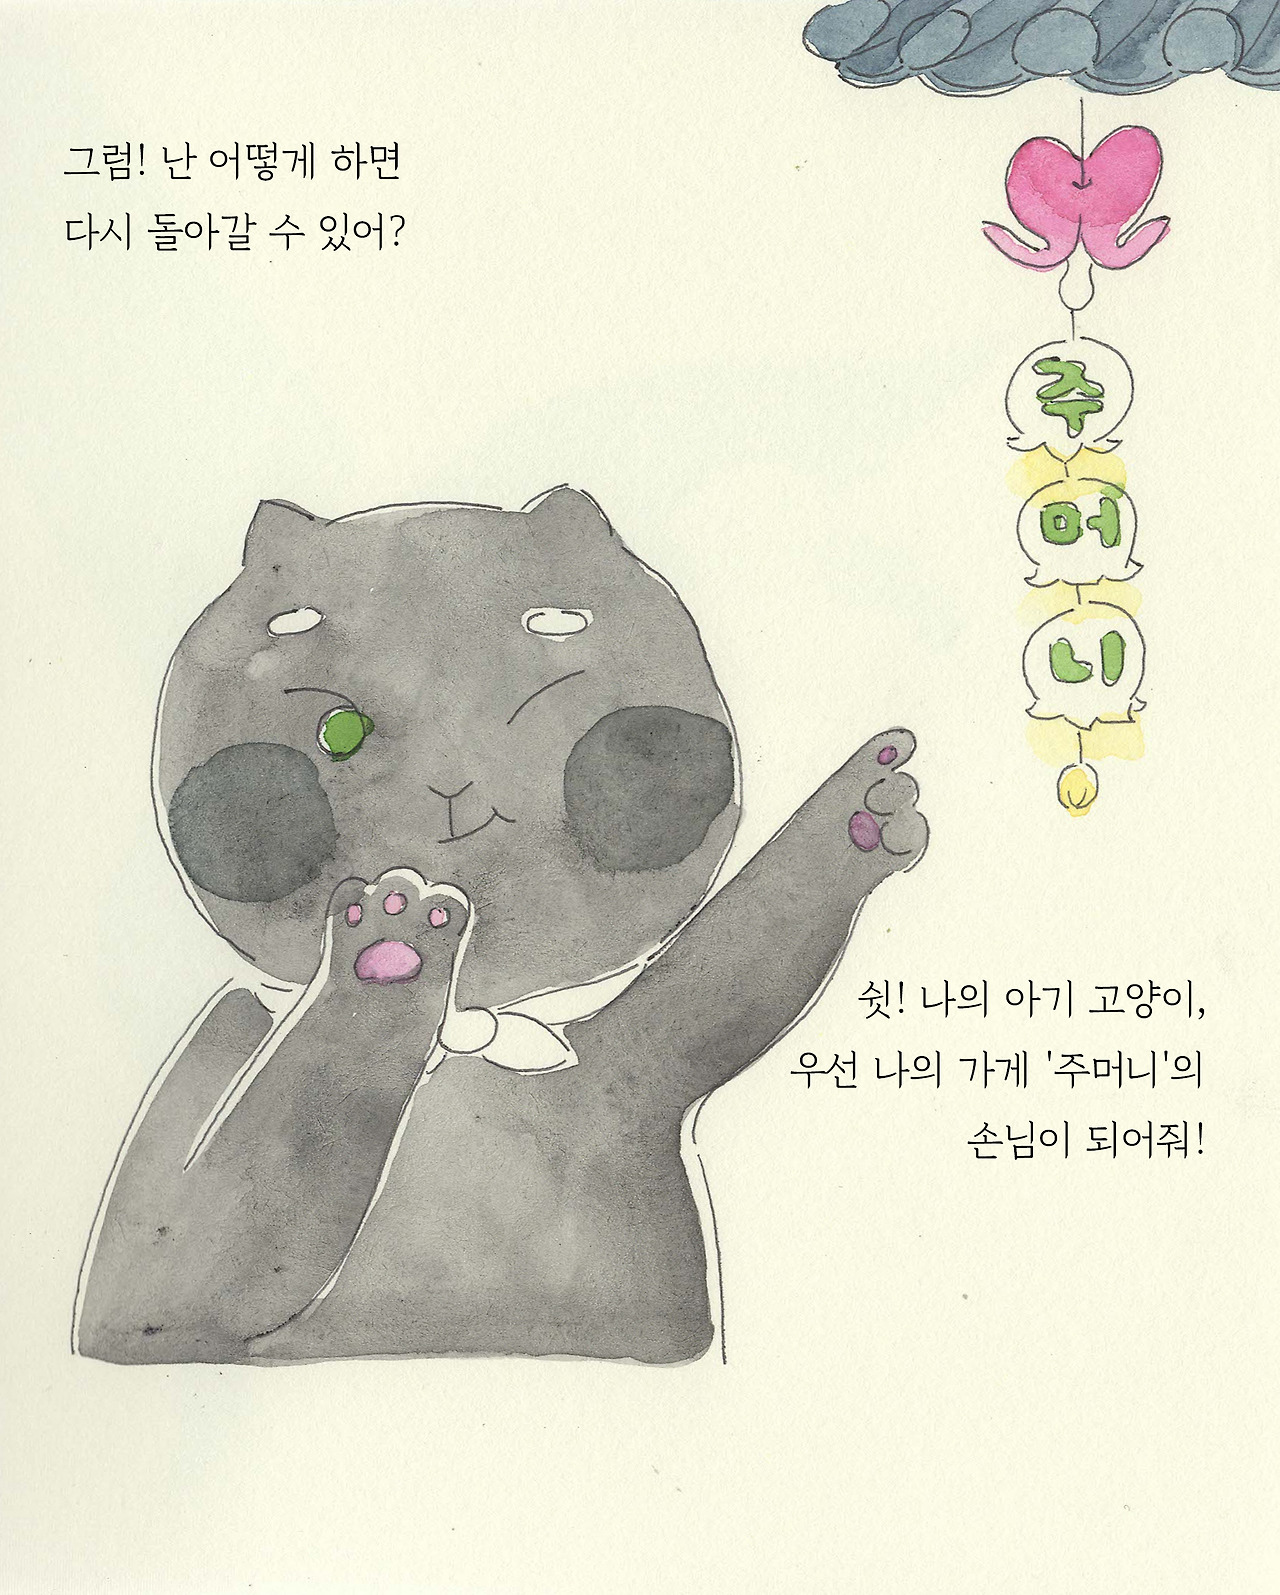 그럼! 난 어떻게 하면
다시 돌아갈 수 있어?
주
머
니
쉿! 나의 아기 고양이,
우선 나의 가게 '주머니'의
손님이 되어줘!